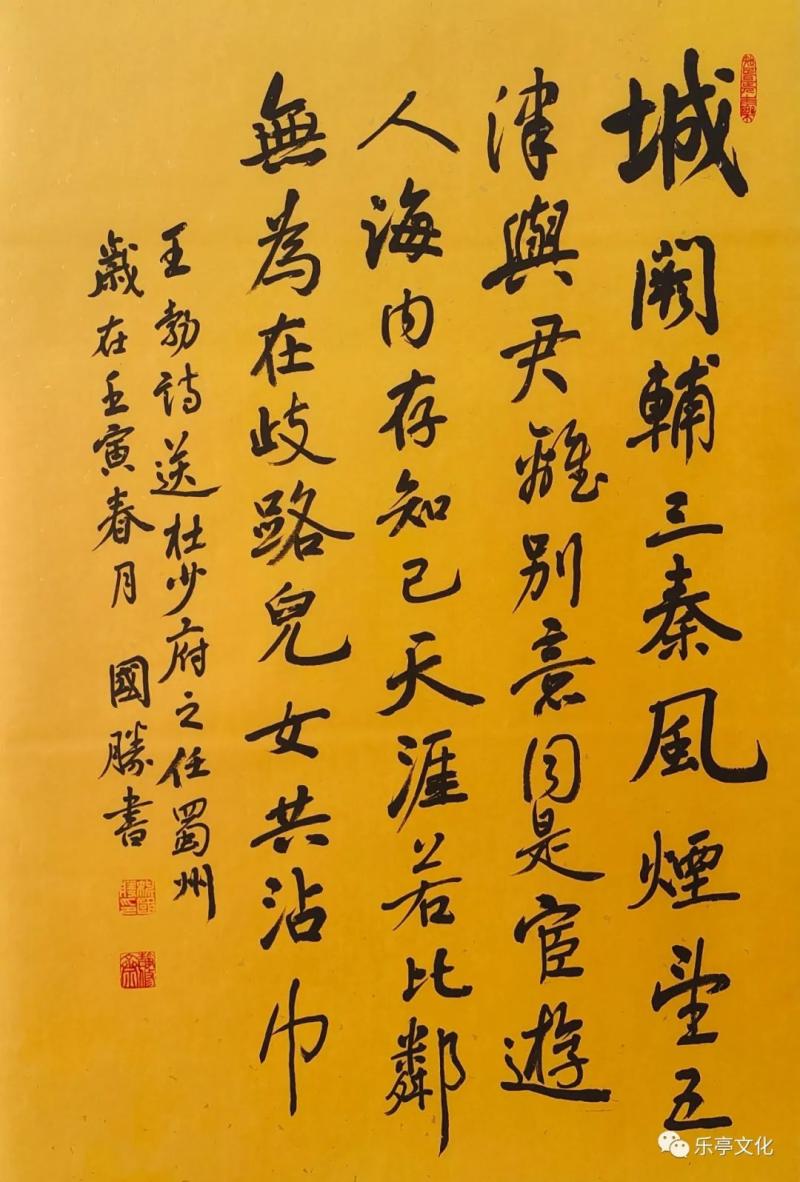 城闕輔三秦風煙望五
津與君離別意同是宦遊
人海内存知己天涯若比鄰
無為在歧路兒女共沾巾
王勃詩送杜少府之任蜀州
歲在壬寅春月 國勝書
乐亭文化